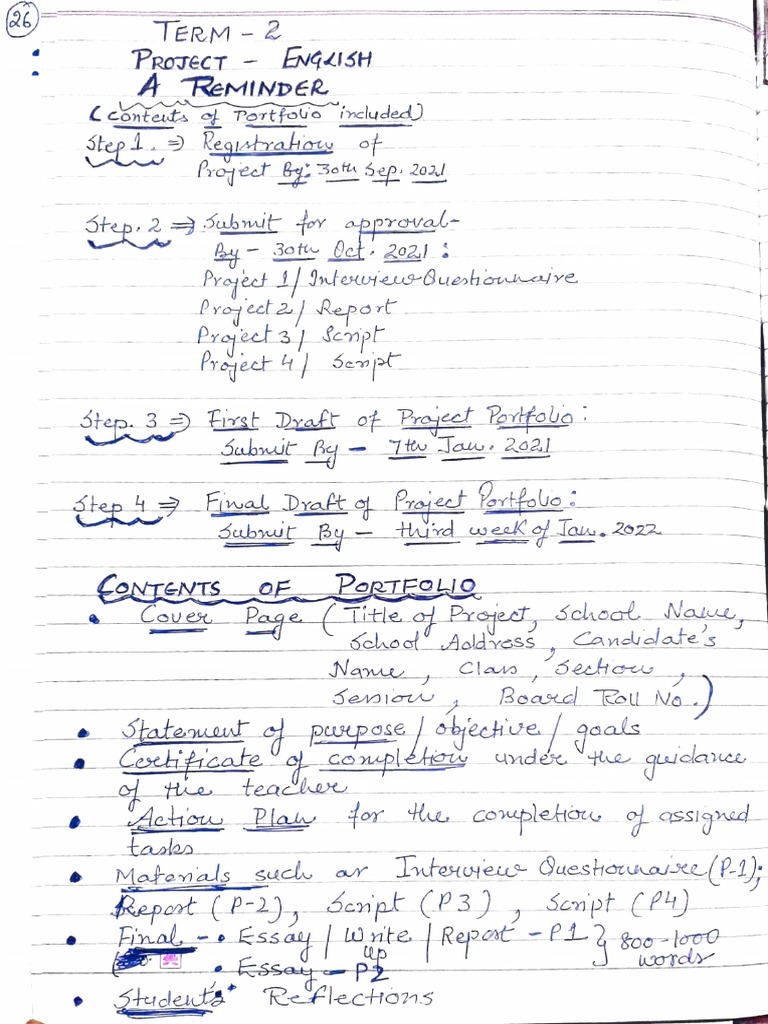 26
TERM - 2
PROJECT - ENGLISH
A REMINDER
(Contents of Portfolio included)
Step 1. ⇒ Registration of
Project By: 30th Sep. 2021
Step. 2 ⇒ Submit for approval-
By - 30th Oct. 2021 :
Project 1/ Interview Questionnaire
Project 2/ Report
Project 3/ Script
Project 4/ Script
Step. 3 ⇒ First Draft of Project Portfolio:
Submit By - 7th Jan. 2021
Step 4 ⇒ Final Draft of Project Portfolio:
Submit By - third week of Jan. 2022
CONTENTS OF PORTFOLIO
• Cover Page (Title of Project, School Name,
School Address, Candidate's
Name, Class, Section,
Session, Board Roll No.)
• Statement of purpose / objective / goals
• Certificate of completion under the guidance
of the teacher
• Action Plan for the completion of assigned
tasks
• Materials such as Interview Questionnaire (P-1);
Report (P-2), Script (P3), Script (P4)
• Final - • Essay / Write up / Report - P1 } 800-1000 words
• Essay - P2
• Student's Reflections